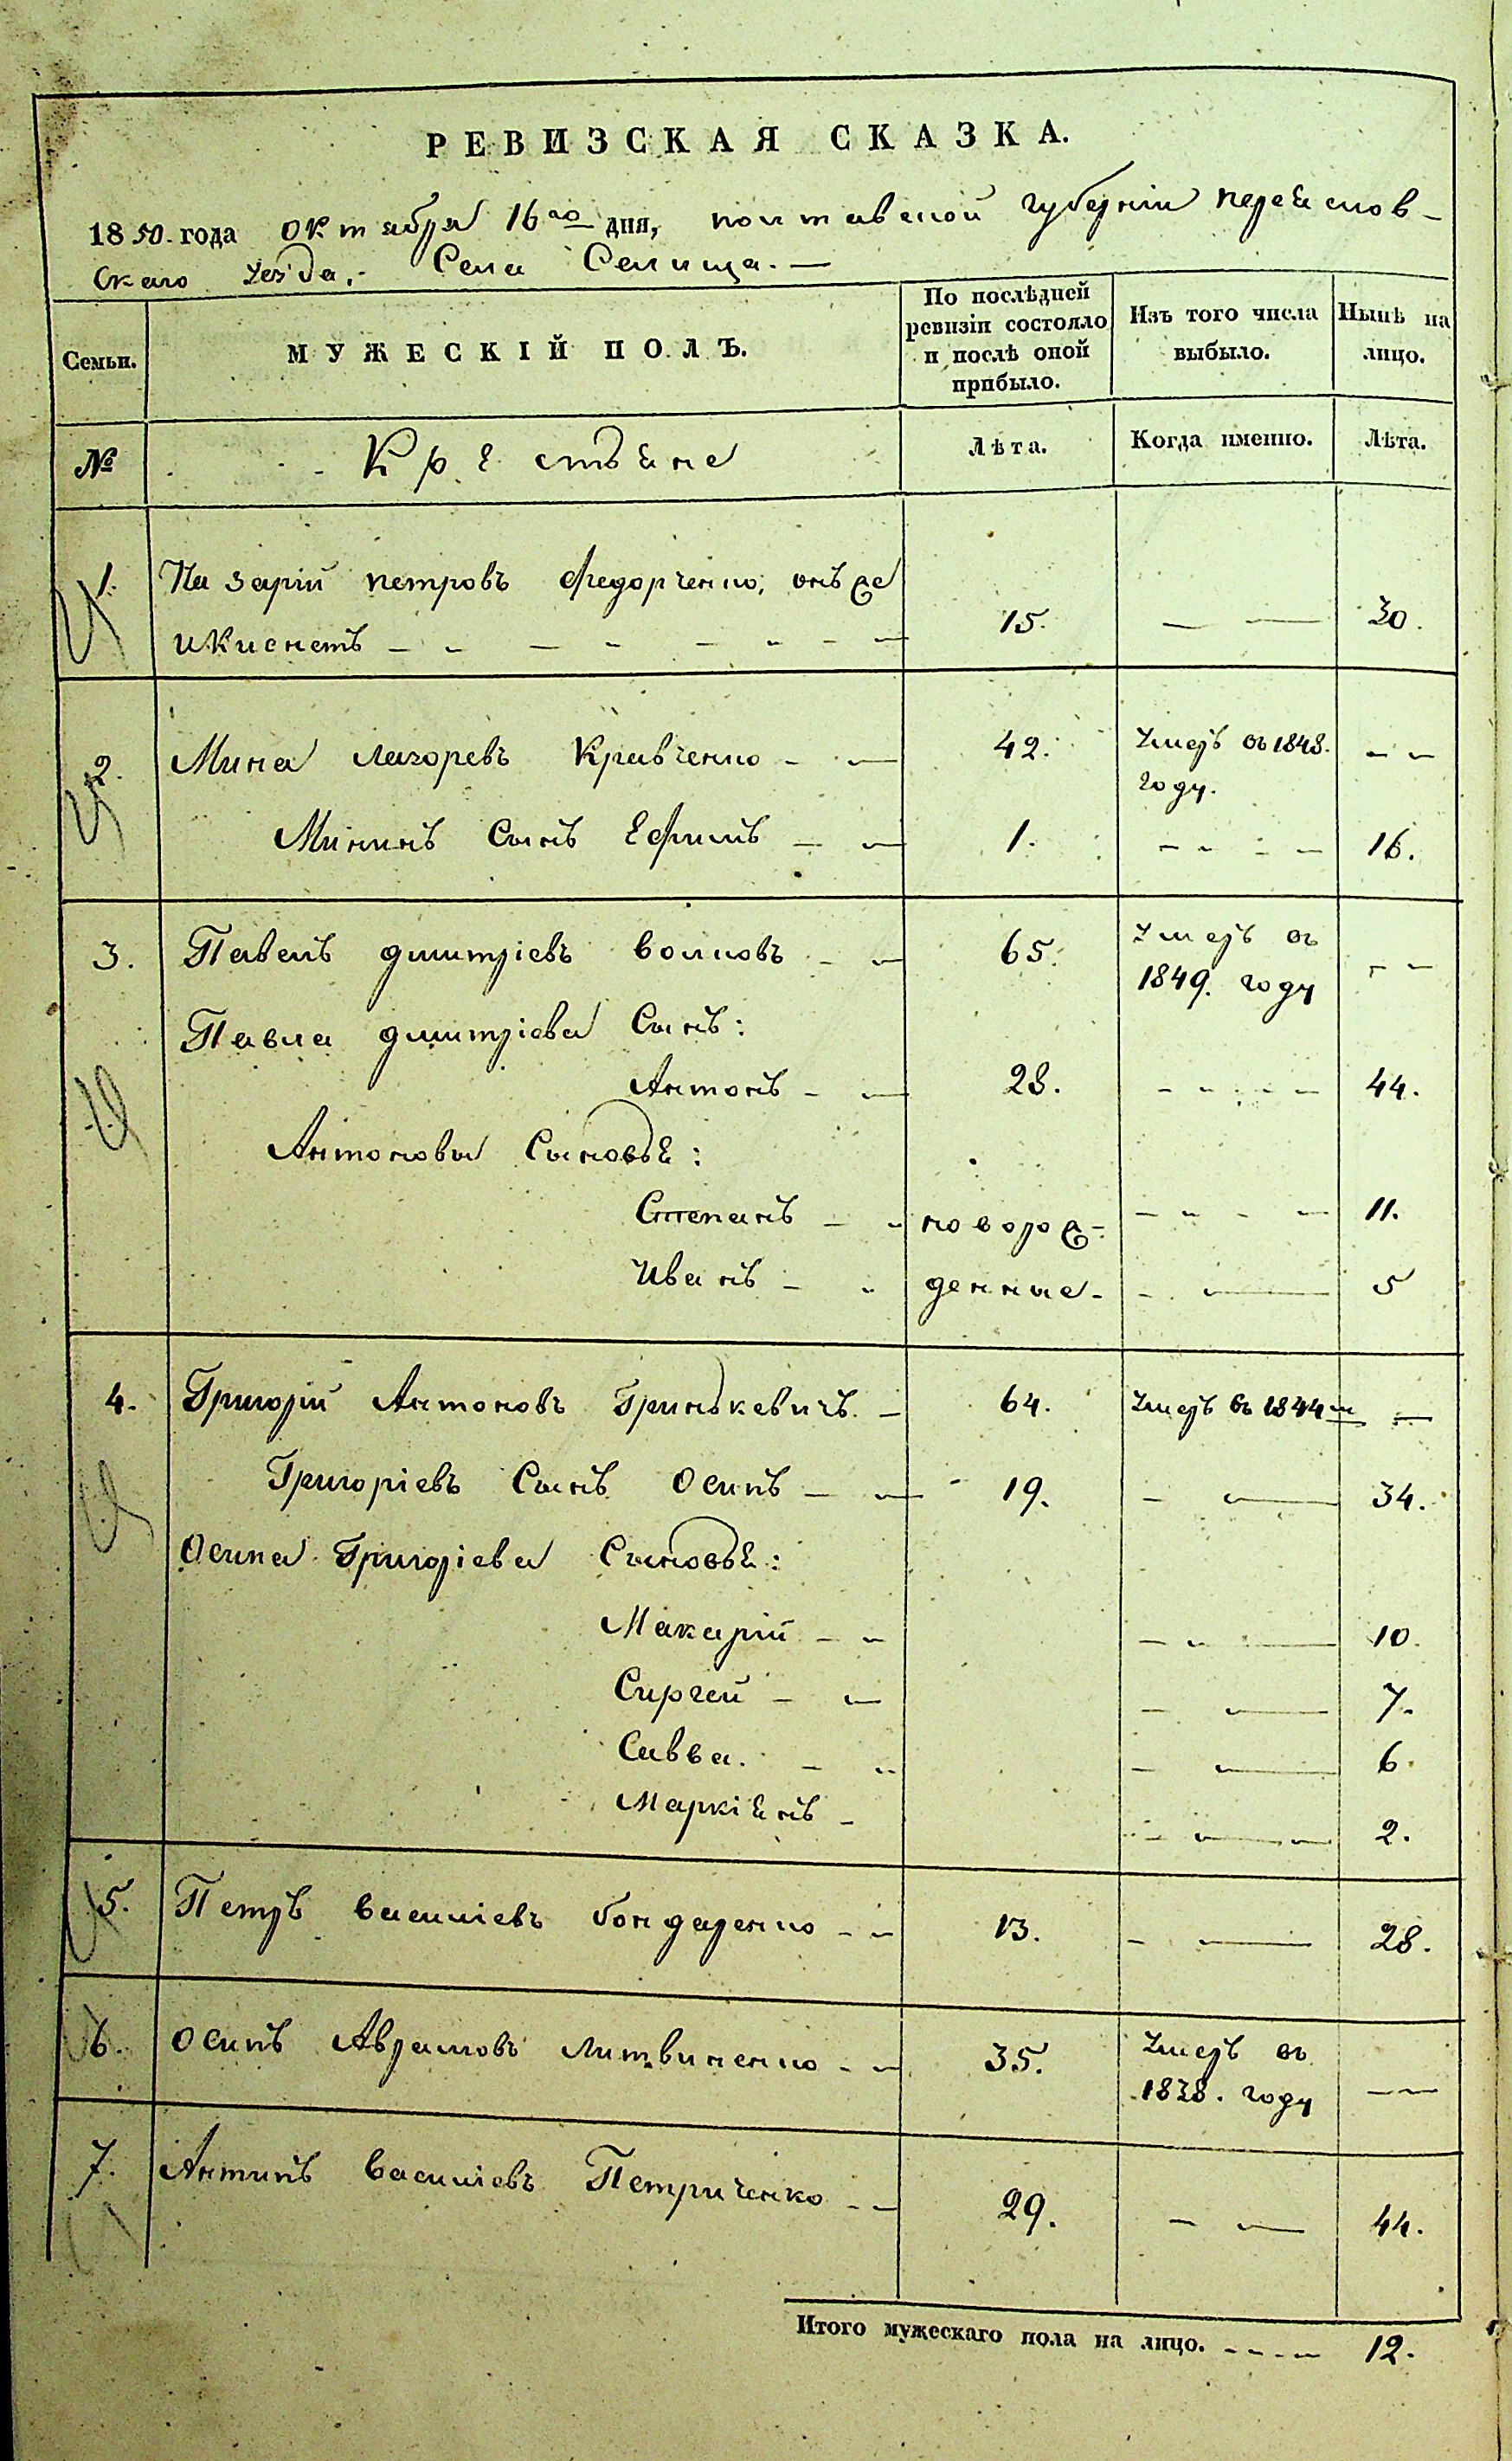 РЕВИЗСКАЯ СКАЗКА.
1850. года октября 16го дня, полтавской губернии переяслов-
скаго уезда,- Села Селища.-
Семьи.
МУЖЕСКІЙ ПОЛЪ.
По послѣдней ревизіи состояло и послѣ оной прибыло.
Изъ того числа выбыло.
Нынѣ на лицо.
№ Крестьяне Лѣта. Когда именно. Лѣта.
1. Назарій петровъ федорченко, онъ же
15. — — 30.
2. Мина лазоревъ Кравченко - — 42. умеръ въ 1848. — —
году.
Мининъ Сынъ Ефимъ — — 1. - - - - 16.
3. Павелъ дмитріевъ волковъ - — 65. умеръ въ - —
1849. году
Павла дмитріева Сынъ:
Антонъ - — 28. - - - - - 44.
Антоновы Сыновья:
Степанъ - - новорож- - - - - 11.
Иванъ - - денные - - — 5
4. Григорій Антоновъ Гринкевичъ. - 64. умеръ въ 1844м —
Григоріевъ Сынъ Осипъ — — 19. - — 34.
Осипа Григоріева Сыновья:
Макарій - - - - — 10.
Сиргей - — - — 7.
Савва. - - - — 6.
Маркіянъ - - — — 2.
5. Петръ василіевъ бондаренко - - 13. - — 28.
6. осипъ Аврамовъ литвиненко - - 35. умеръ въ
1838. году — —
7. Антипъ василіевъ Петриченко - - 29. - — 44.
Итого мужескаго пола на лицо. - - - - 12.